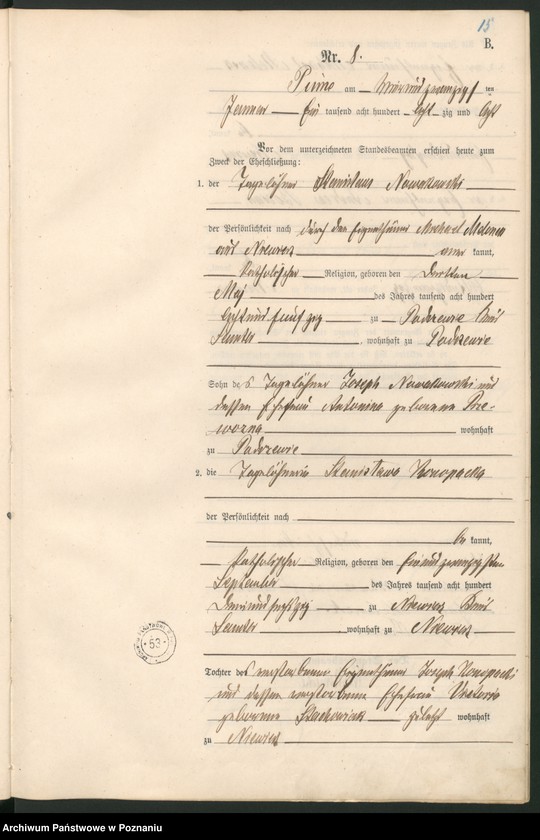 15
B.
Nr. 8.
Pinne am vierundzwanzigsten
Januar Ein tausend acht hundert acht zig und acht
Vor dem unterzeichneten Standesbeamten erschien heute zum
Zweck der Eheschließung:
1. der Tagelöhner Stanislaus Nowakowski
der Persönlichkeit nach durch den Eigenthümer Michael
aus Niewierz aner kannt,
katholischer Religion, geboren den dritten
Mai des Jahres tausend acht hundert
acht und fünf zig zu Podrzewie Kreis
Samter, wohnhaft zu Podrzewie
Sohn des Tagelöhner Joseph Nowakowski und
dessen Ehefrau Antonina geborene
wohnhaft
zu Podrzewie
2. die Tagelöhnerin Stanislawa Konopacka
der Persönlichkeit nach
be kannt,
katholischer Religion, geboren den einundzwanzigsten
September des Jahres tausend acht hundert
dreiundsechszig zu Niewierz Kreis
Samter, wohnhaft zu Niewierz
Tochter des verstorbenen Eigenthümer Joseph Konopacki
und dessen verstorbene Ehefrau Victoria
geborene Stachowiak zuletzt wohnhaft
zu Niewierz
53
Archiwum Państwowe w Poznaniu